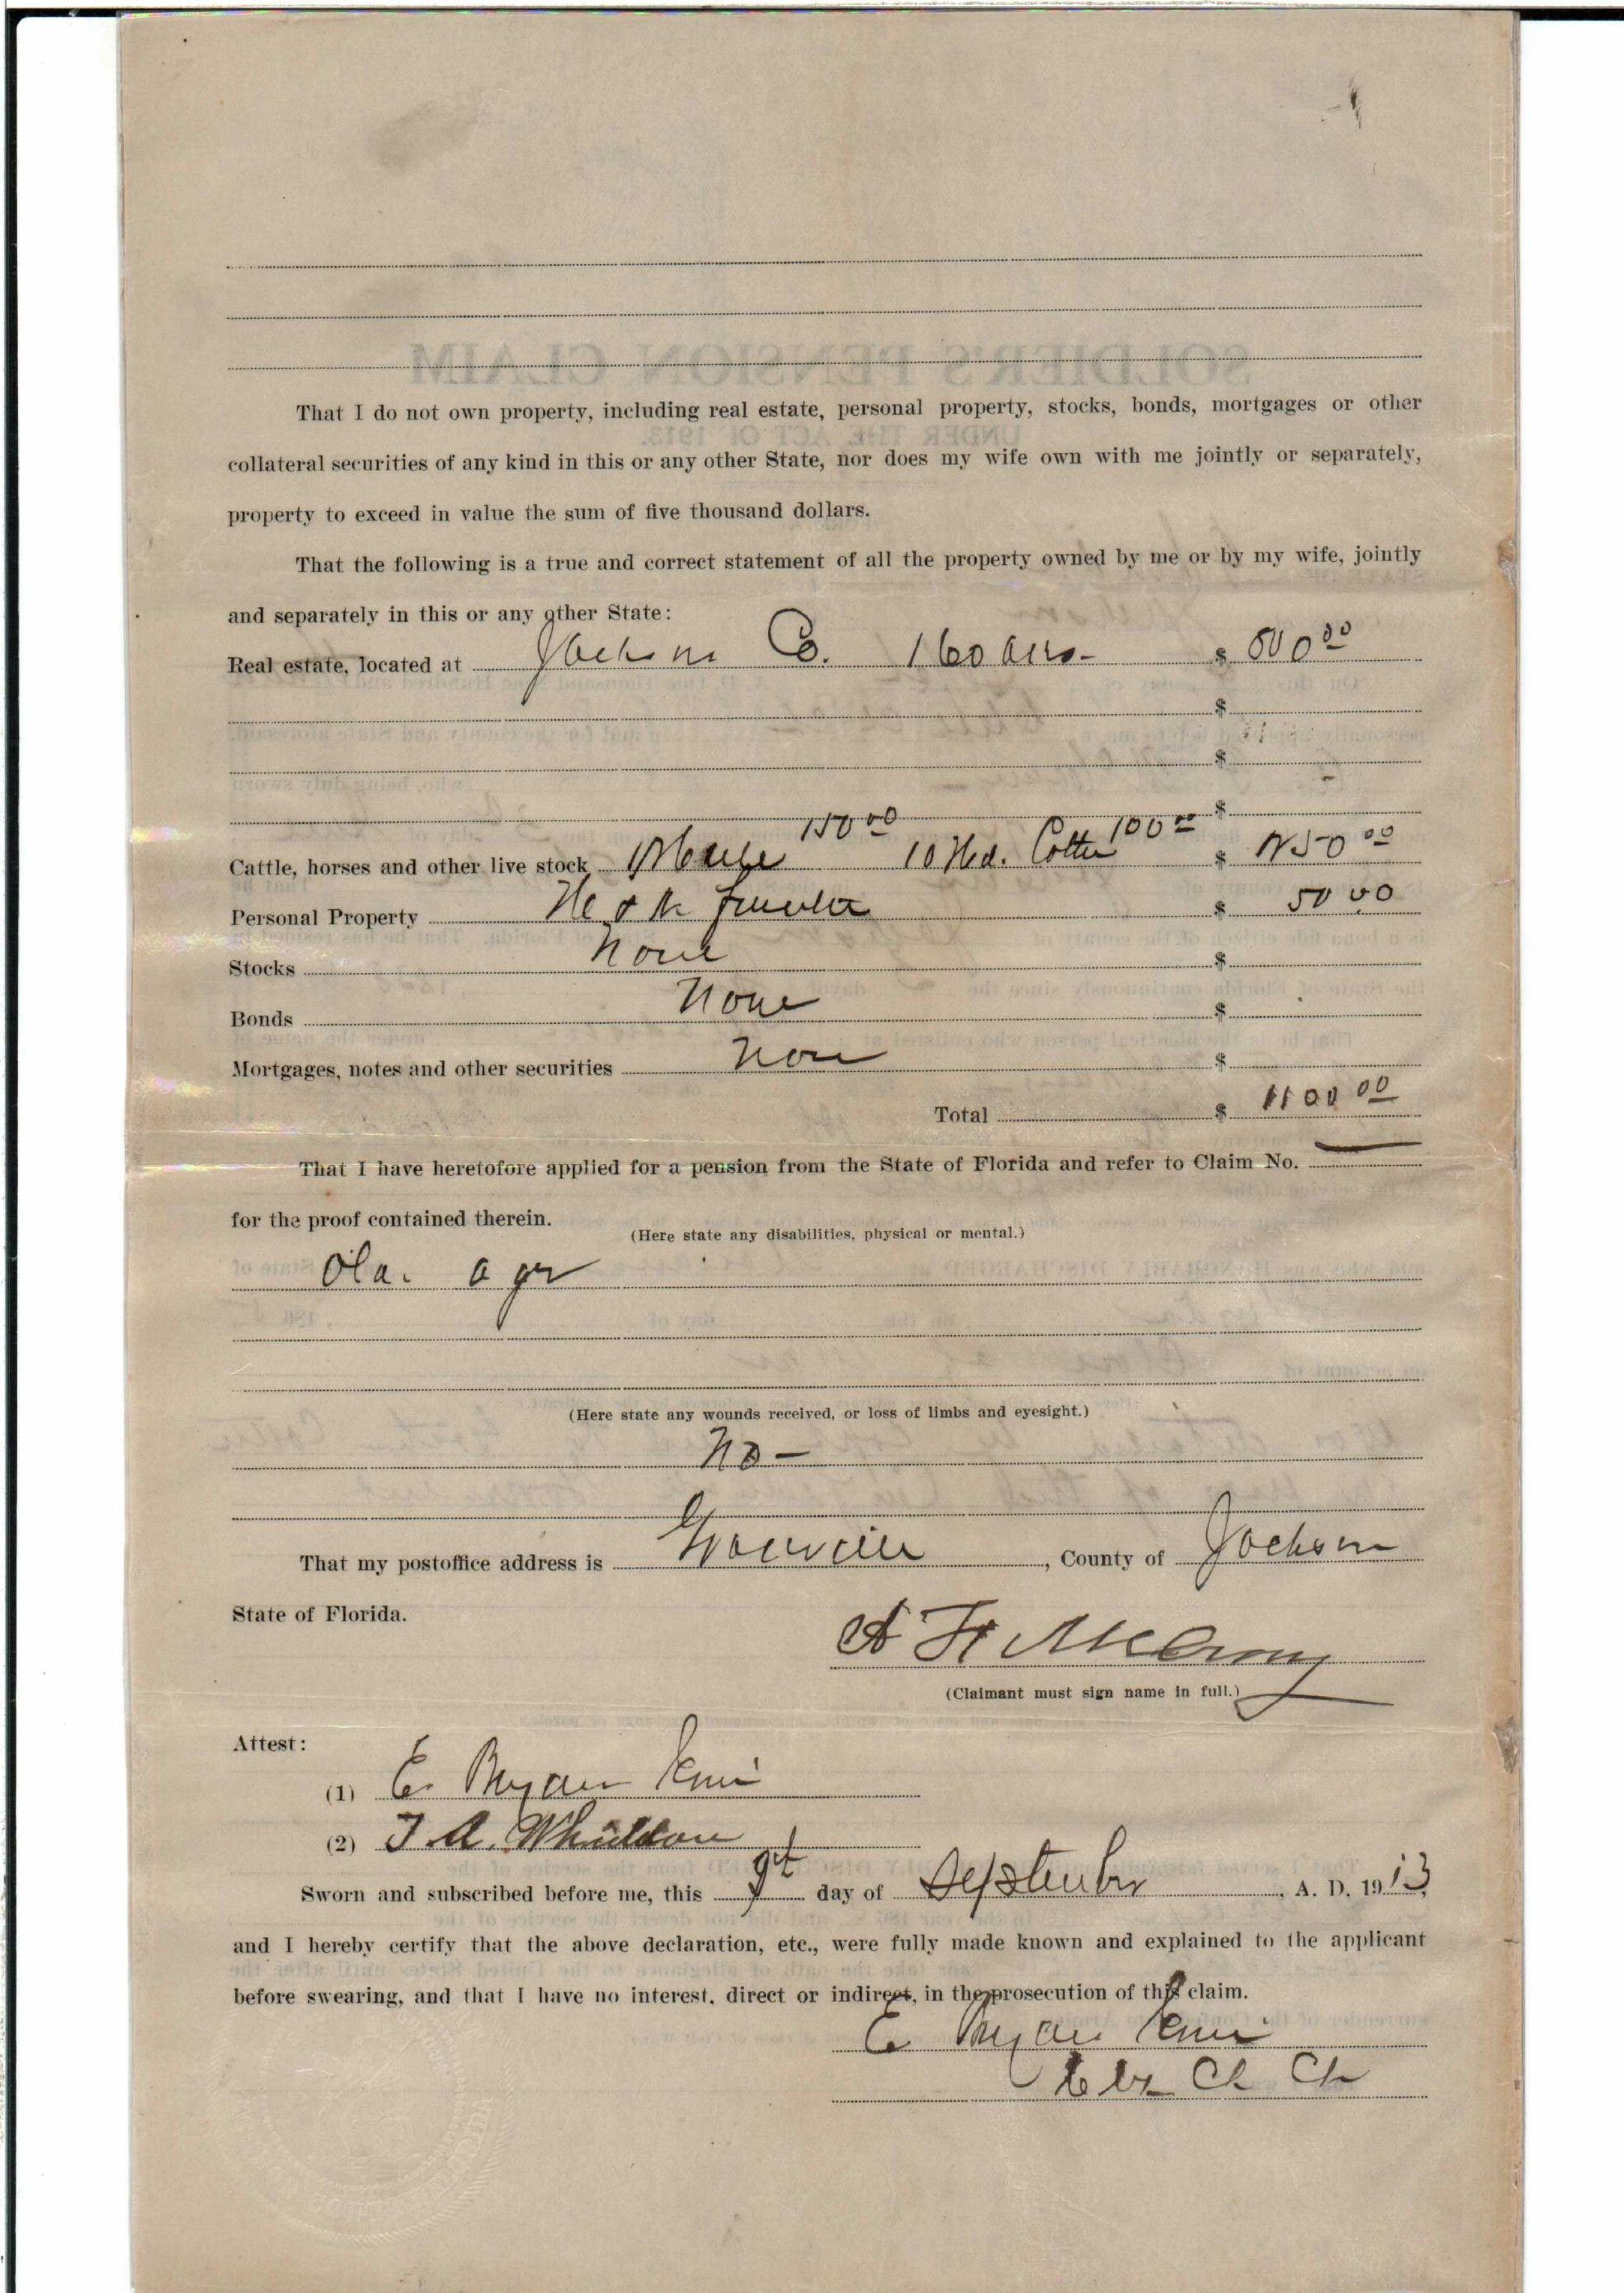 That I do not own property, including real estate, personal property, stocks, bonds, mortgages or other
collateral securities of any kind in this or any other State, nor does my wife own with me jointly or separately,
property to exceed in value the sum of five thousand dollars.
That the following is a true and correct statement of all the property owned by me or by my wife, jointly
and separately in this or any other State:
Real estate, located at Jackson Co. 160 acres - $ 800 00
$
$
$
150 00 100 00
Cattle, horses and other live stock 1 10 Hd. $ 250 00
Personal Property H & K $ 50 00
Stocks None $
Bonds None $
Mortgages, notes and other securities None $
Total $ 1100 00
That I have heretofore applied for a pension from the State of Florida and refer to Claim No. —
for the proof contained therein.
(Here state any disabilities, physical or mental.)
Old age
(Here state any wounds received, or loss of limbs and eyesight.)
No -
That my postoffice address is , County of Jackson
State of Florida.
A
(Claimant must sign name in full.)
Attest:
(1) E. Bryan
(2) J. A. Whiddon
Sworn and subscribed before me, this day of September, A. D. 1913,
and I hereby certify that the above declaration, etc., were fully made known and explained to the applicant
before swearing, and that I have no interest, direct or indirect, in the prosecution of this claim.
E Bryan
Clk